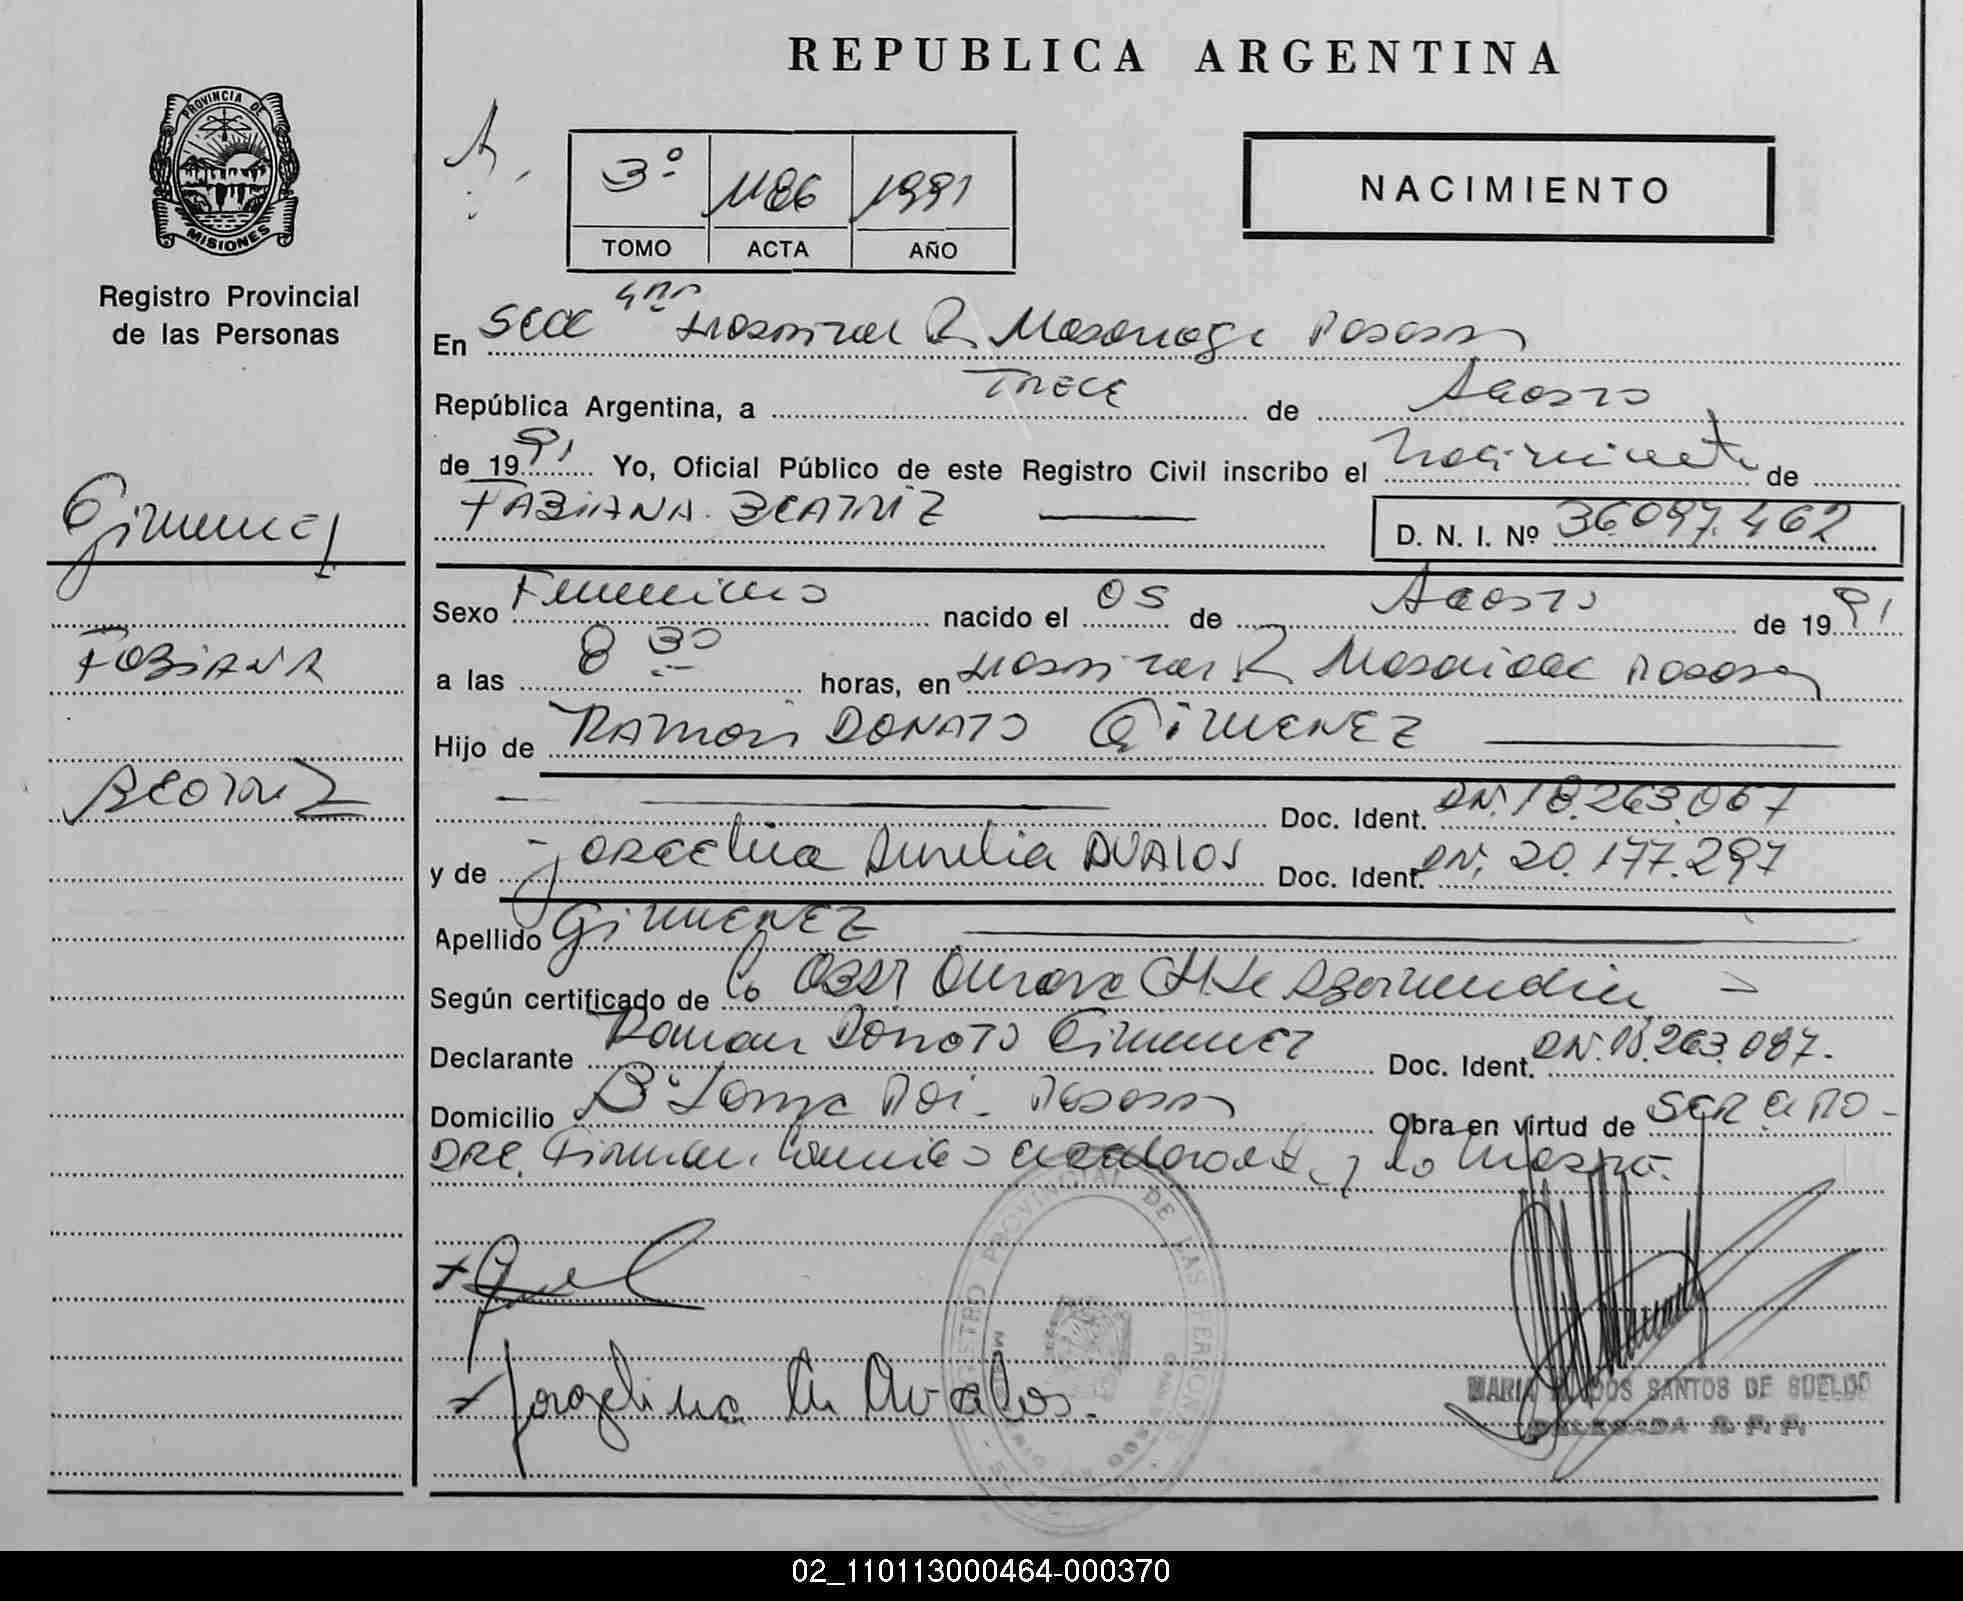 REPUBLICA ARGENTINA
PROVINCIA DE
MISIONES
Registro Provincial
de las Personas
3º 1186 1991
TOMO ACTA AÑO
NACIMIENTO
En Secc 4ta Hospital R Madariaga Posadas
República Argentina, a TRECE de Agosto
de 1991 Yo, Oficial Público de este Registro Civil inscribo el Nacimiento de
FABIANA BEATRIZ
D. N. I. Nº 36.097.462
Gimenez
FABIANA
BEATRIZ
Sexo Femenino nacido el 05 de Agosto de 1991
a las 8 30 horas, en Hospital R Madariaga Posadas
Hijo de RAMON DONATO GIMENEZ
Doc. Ident. DNI. 18.263.087
y de Jorgelina Aurelia AVALOS Doc. Ident. DNI. 20.177.297
Apellido GIMENEZ
Según certificado de la Obst Aurora H. de
Declarante Ramon Donato Gimenez Doc. Ident. DNI. 18.263.087.
Domicilio Bº Posadas Obra en virtud de SER EL PA-
DRE. Firman y la Madre.
Jorgelina A. Avalos.
REGISTRO PROVINCIAL DE LAS PERSONAS
MARIA DOS SANTOS DE SUELDO
DELEGADA R. P. P.
02_110113000464-000370